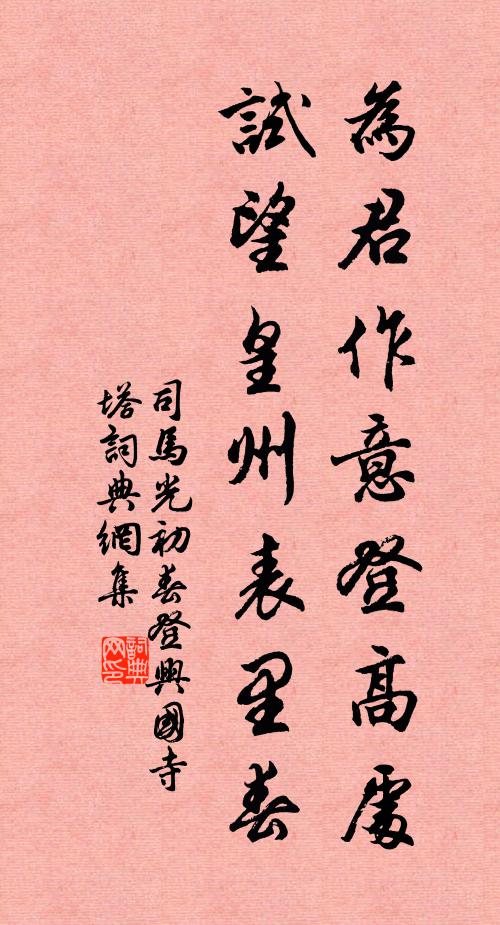 為君作意登高處
試望皇州表里春
司馬光初春登興國寺
塔詞典網集
詞典
网印